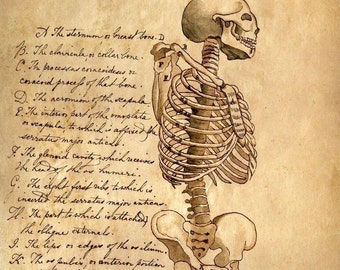 A. The sternum or breast bone. D.
B. The clavicula or collar bone.
C. The processus coracoideus or
coracoid process of that bone.
D. The acromion of the scapula.
E. The interior part of the
or scapula, to which is affixed the
serratus major anticus.
F. The glenoid cavity which receives
the head of the os humeri.
G. The eight first ribs, to which is
inserted the serratus major anticus.
H. The part to which is attached
the oblique externals.
I. The lips or edges of the os ilium.
K. The os pubis, or anterior portion